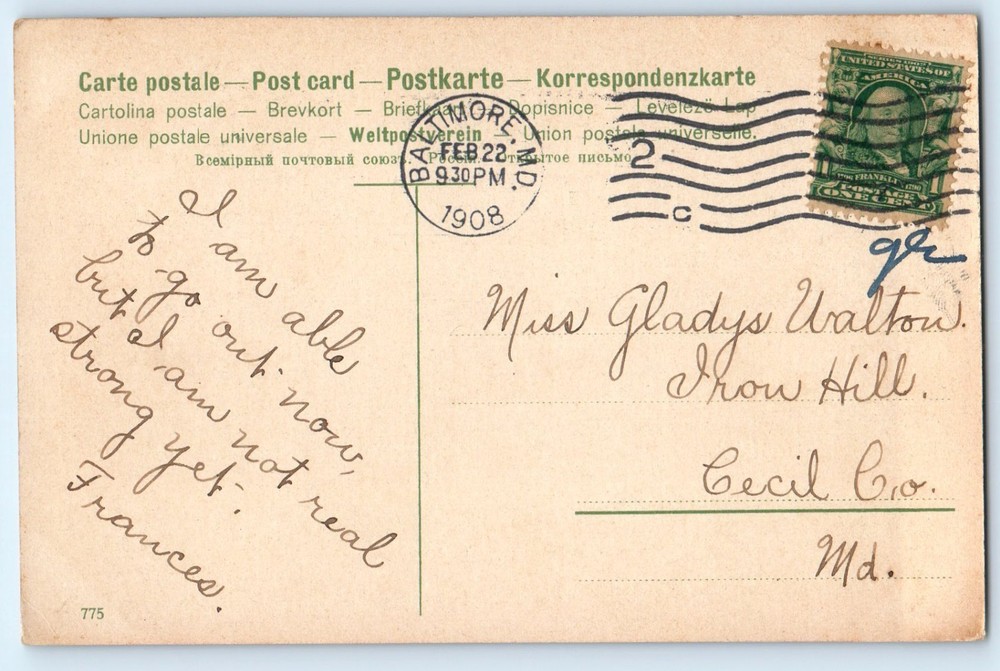 Carte postale — Post card — Postkarte — Korrespondenzkarte
Cartolina postale — Brevkort — Dopisnice — Levelező-Lap
Unione postale universale — Weltpostverein — Union postale universelle.
Всемірный почтовый союзъ. Россія. Открытое письмо.
BALTIMORE, MD.
FEB 22
9 30 PM
1908
2
C
SERIES 1902
UNITED STATES OF
AMERICA
1706 FRANKLIN 1790
POSTAGE
1 ONE CENT 1
I am able
to go out now,
but I am not real
strong yet.
Frances.
Miss Gladys Walton.
Iron Hill.
Cecil Co.
Md.
775